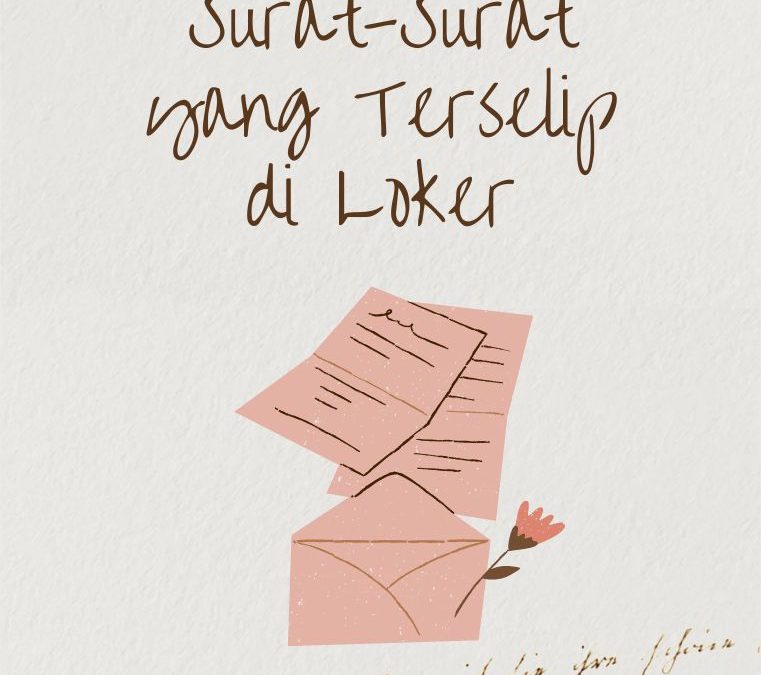 Surat-Surat
yang Terselip
di Loker